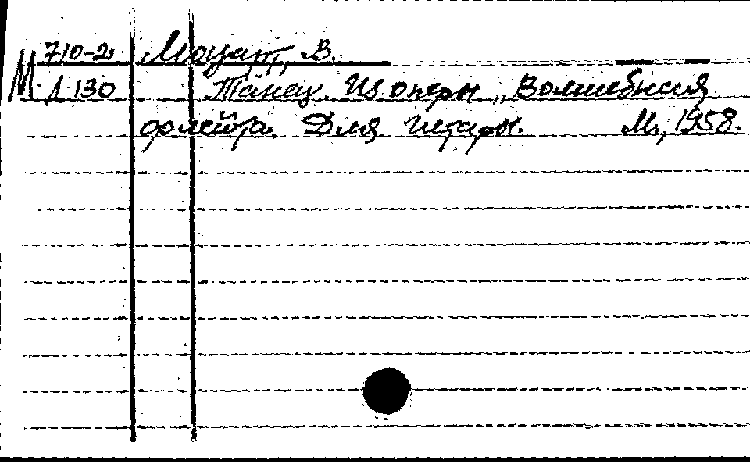 710-2 Моцарт, В.
М Л 130 Танец. Из оперы „Волшебная
флейта. Для гитары. М., 1958.